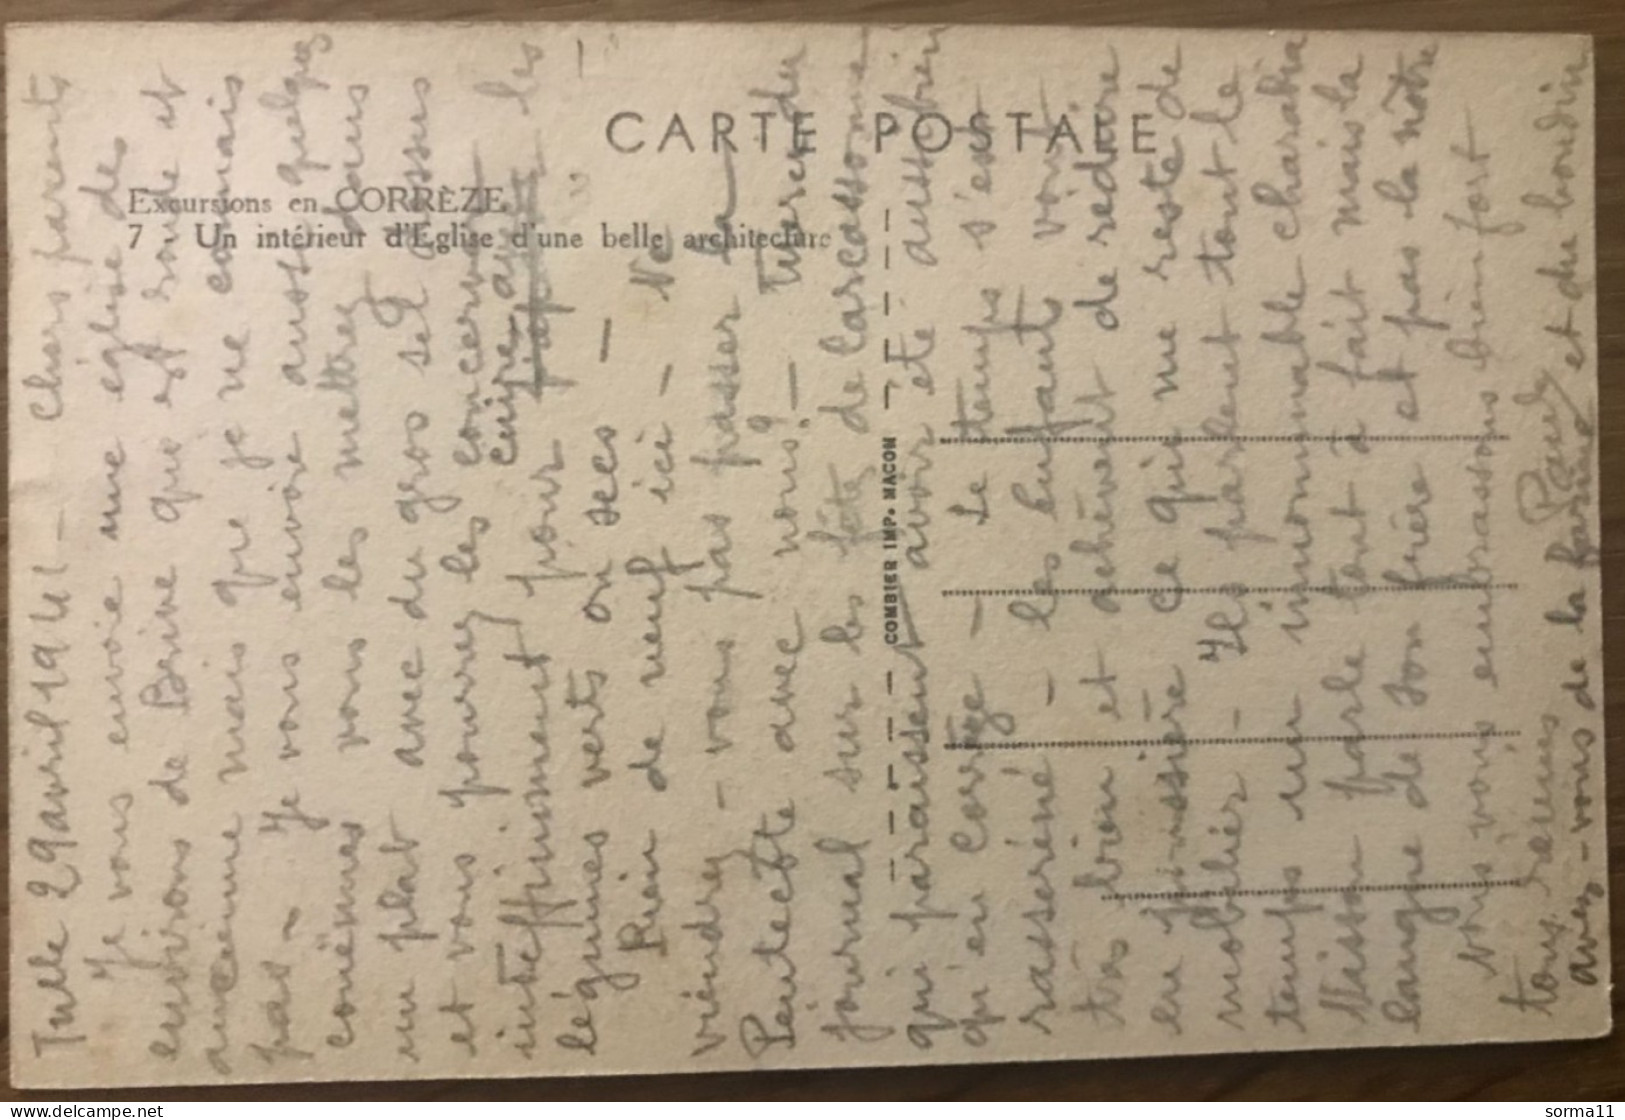 CARTE POSTALE
Excursions en CORRÈZE
7 Un intérieur d'Eglise d'une belle architecture
COMBIER IMP. MACON
Tulle 29 avril 1941 - Chers parents
Je vous envoie une église des
environs de Brive que est ronde et
ancienne mais que je ne connais
pas - Je vous envoie aussi quelques
couënnes vous les mettrez dans
un plat avec du gros sel dessus
et vous pourrez les concerver
indeffiniment pour cuire avec les
légumes verts ou secs -
Rien de neuf ici - Ne
viendrez-vous pas passer la
Pentecôte avec nous? -
journal sur les fêtes de Carcassonne
qui paraissent avoir été aussi bien
qu'en corrèze - Le temps s'est
rasséréné - les enfants vont
très bien et achèvent de réduire
en poussière ce qui me reste de
mobilier - Ils parlent tout le
temps un innommable charabia
Misson parle tout à fait mais la
langue de son frère et pas la nôtre
Nous vous embrassons bien fort
tous Paule
avez-vous de la farine et du boudin
reçues